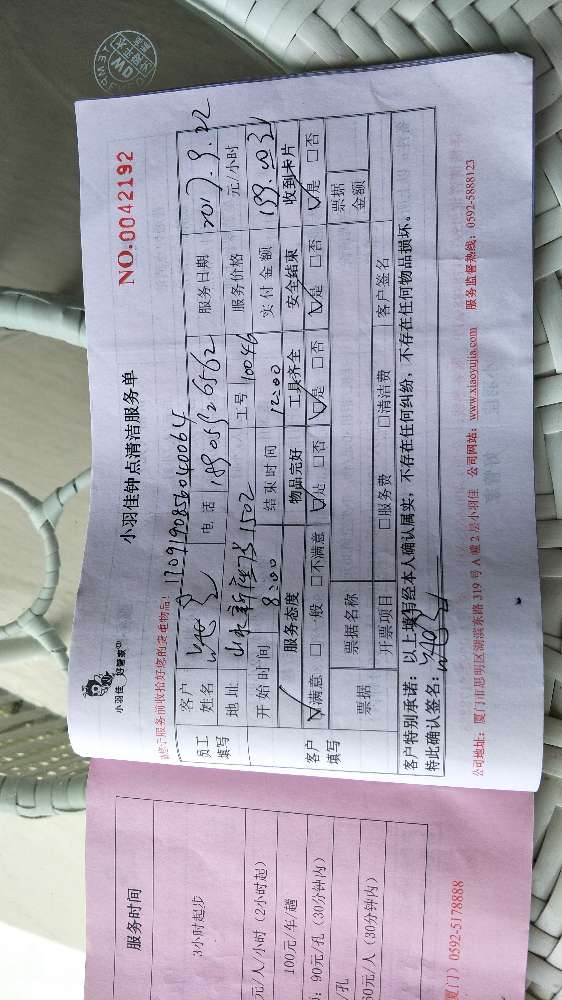 小羽佳 好管家
小羽佳钟点清洁服务单
NO.0042192
请您于服务前收拾好您的贵重物品!
170919085604 0064
员工填写
客户姓名
电话
服务日期 2017.9.22
地址
1502
工号 10046
服务价格 元/小时
开始时间 8:00
结束时间 12:00
实付金额
客户填写
服务态度
物品完好
工具齐全
安全结束
收到卡片
☑满意 □一般 □不满意
☑是 □否
☑是 □否
☑是 □否
☑是 □否
票据
票据名称
票据金额
开票项目
□服务费 □清洁费
客户签名
客户特别承诺: 以上填写经本人确认属实,不存在任何纠纷,不存在任何物品损坏。
特此确认签名:
公司地址: 厦门市思明区湖滨东路319号A幢2层小羽佳 公司网站: www.xiaoyujia.com 服务监督热线: 0592-5888123
服务时间
3小时起步
元/人/小时 (2小时起)
100元/年/趟
: 90元/孔 (30分钟内)
/孔
60元/人 (30分钟内)
厦门) 0592-5178888